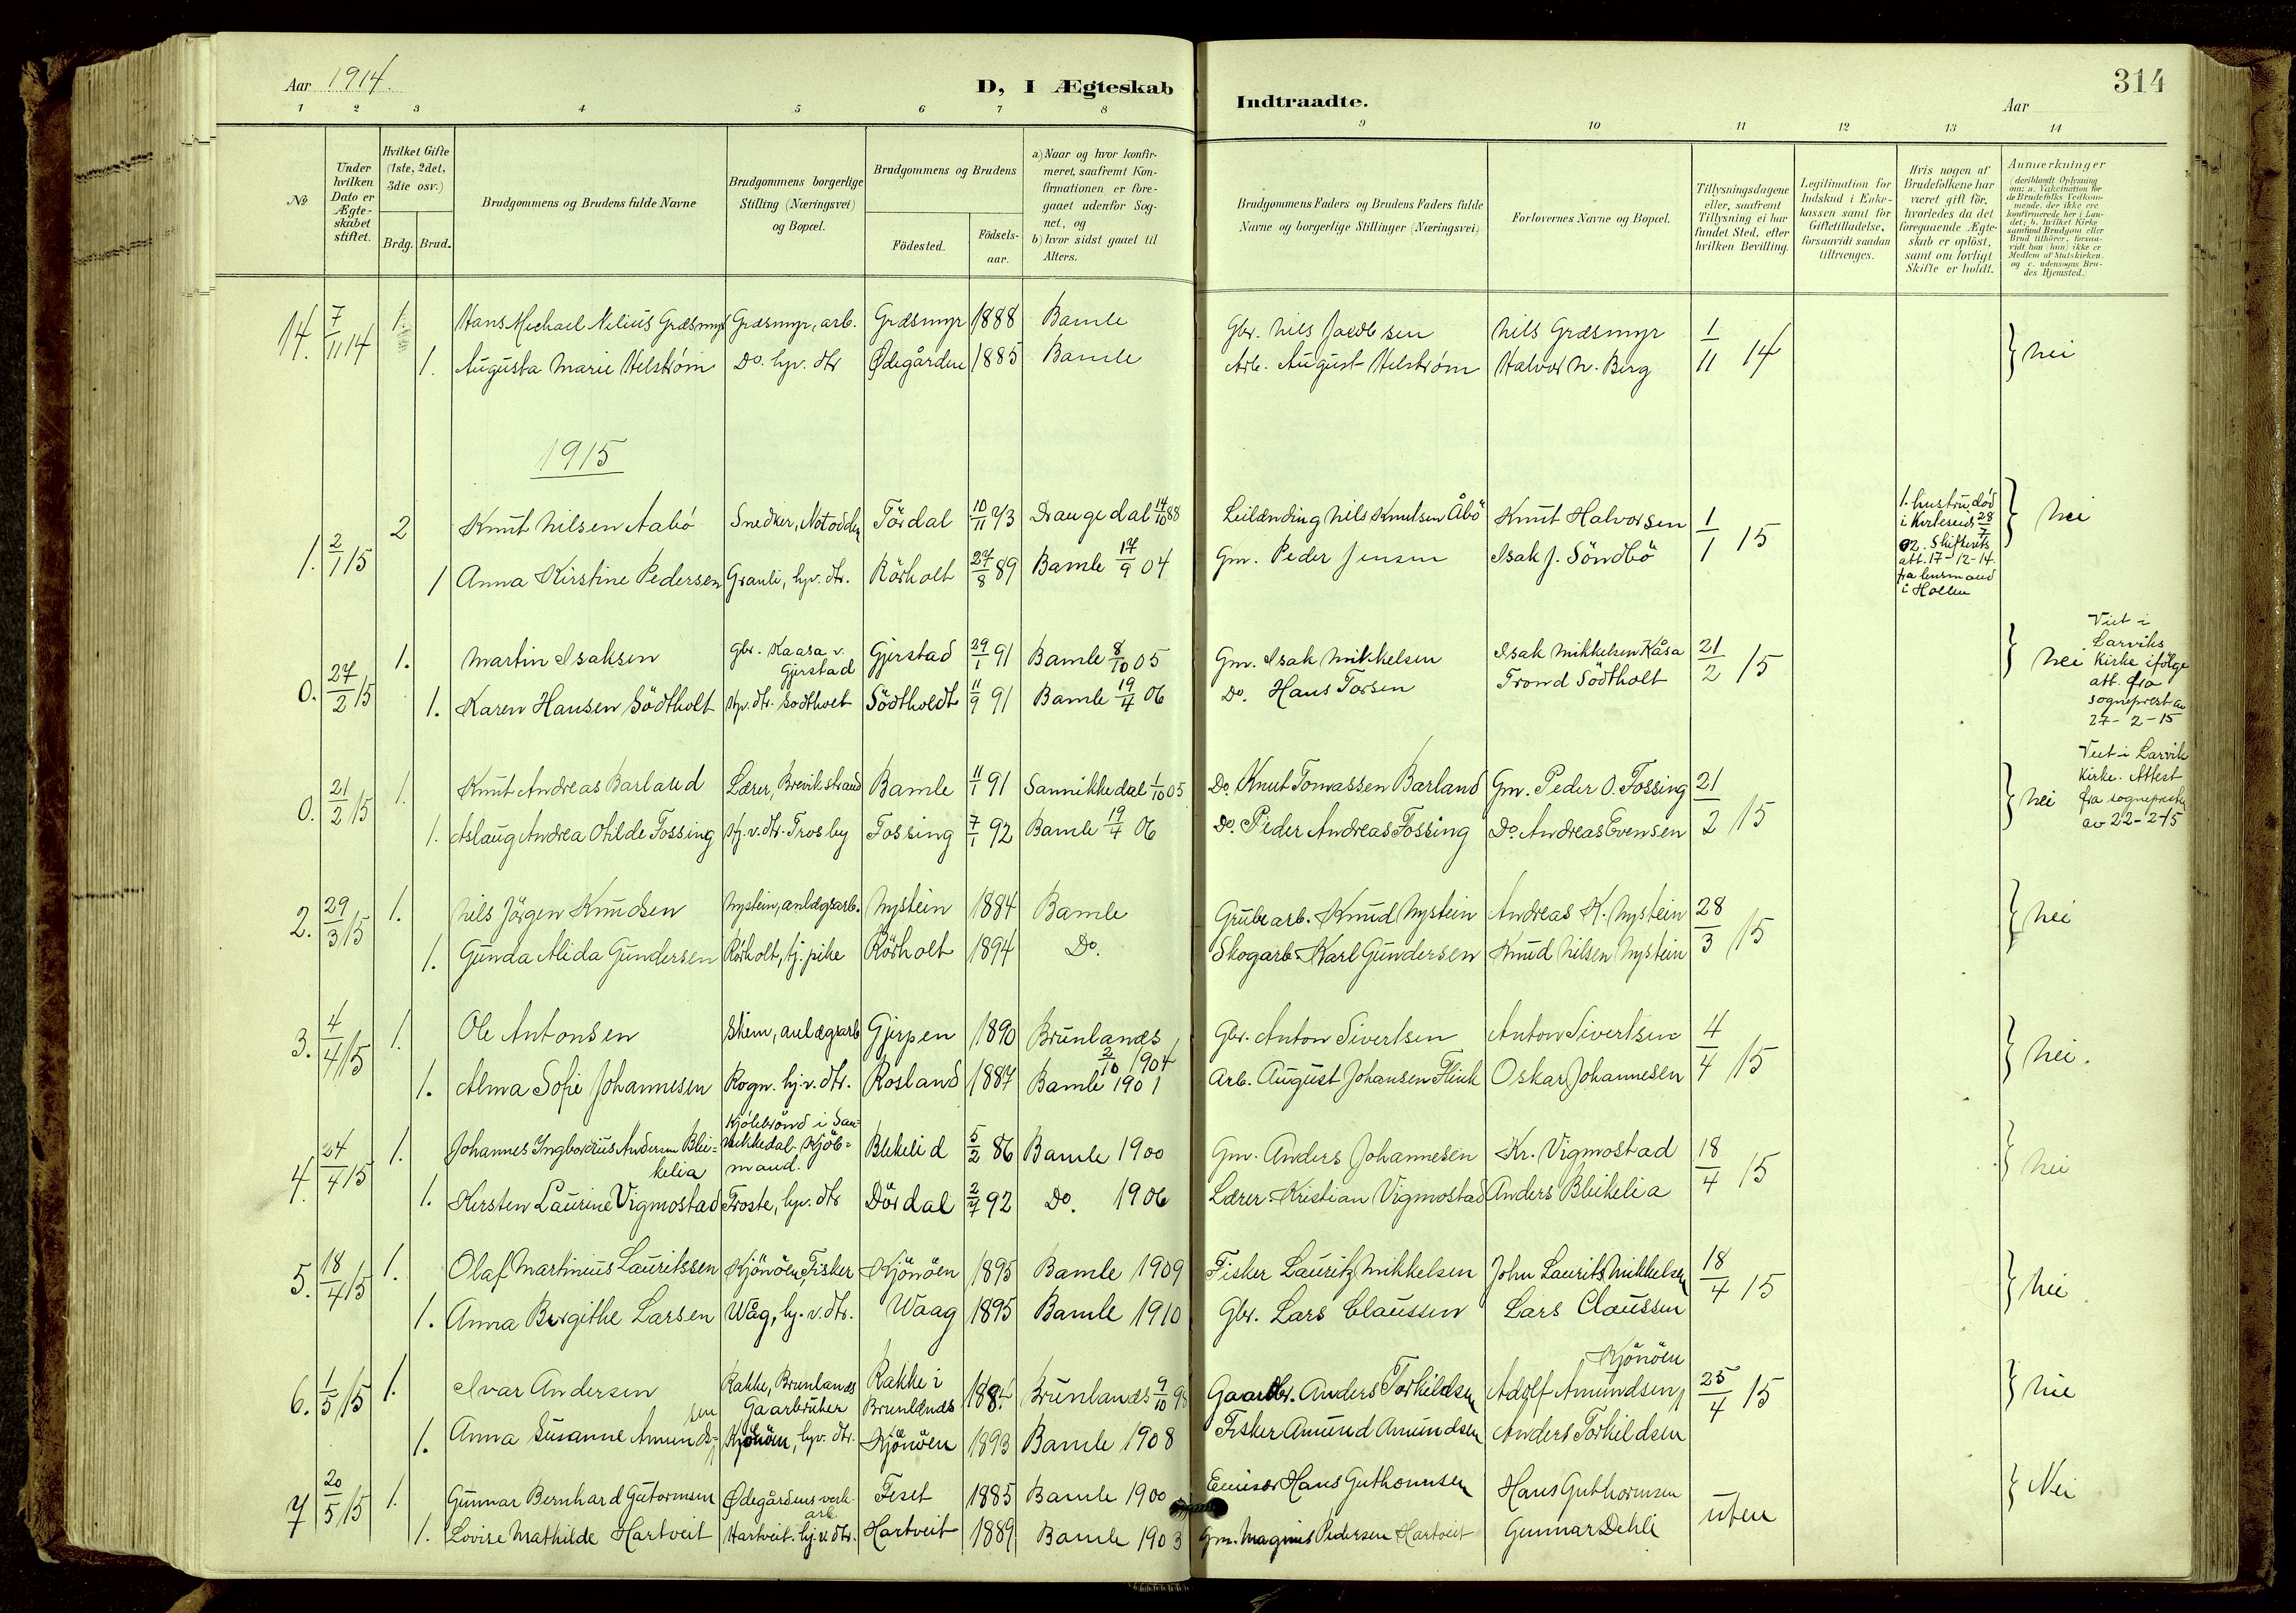 Aar 1914.
D, I Ægteskab Indtraadte.
Aar
314
1 2 3 4 5 6 7 8 9 10 11 12 13 14
No
Under hvilken Dato er Ægteskabet stiftet.
Hvilket Gifte (1ste, 2det, 3die osv.)
Brdg. Brud.
Brudgommens og Brudens fulde Navne
Brudgommens borgerlige Stilling (Næringsvei) og Bopæl.
Brudgommens og Brudens
Födested.
Födsels-aar.
a) Naar og hvor konfir-
meret, saafremt Kon-
firmationen er fore-
gaaet udenfor Sog-
net, og
b) hvor sidst gaaet til
Alters.
Brudgommens Faders og Brudens Faders fulde
Navne og borgerlige Stillinger (Næringsvei)
Forlovernes Navne og Bopæl.
Tillysningsdagene
eller, saafremt
Tillysning ei har
fundet Sted, efter
hvilken Bevilling.
Legitimation for
Indskud i Enke-
kassen samt for
Giftetilladelse,
forsaavidt saadan
tiltrænges.
Hvis nogen af
Brudefolkene har
været gift för,
hvorledes da det
foregaaende Ægte-
skab er oplöst,
samt om lovligt
Skifte er holdt.
Anmerkninger
(deriblandt Oplysning
om: a. Vakcination for
de Brudefolks Vedkom-
mende, der ikke ere
konfirmerede her i Lan-
det; b. hvilket Kirke-
samfund Brudgom eller
Brud tilhörer, forsaa-
vidt han (hun) ikke er
Medlem af Statskirken.
og c. udensogns Bru-
des Hjemsted.)
14. 7/11 14 1. Hans Michael Nilius Græsmyr Græsmyr, arb. Græsmyr 1888 Bamle Gbr. Nils Jacobsen Nils Græsmyr 1/11 14 } nei
1. Augusta Marie Helstrøm Do. hv. dtr Ødegårdene 1885 Bamle Arb. August Helstrøm Halvor N. Berg
1915
1. 2/1 15 2 Knut Nilsen Aabö Snedker, Notodden Tördal 10/11 73 Drangedal 14/10 88 Leilænding Nils Knutsen Åbö Knut Halvorsen 1/1 15 } nei
1 Anna Kirstine Pedersen Granli, hv. dtr. Rörholt 27/8 89 Bamle 17/9 04 Gm. Peder Jensen Isak J. Söndbö
1. hustru död
i Kirkeeid 28/7
02. Skifterets
att. 17-12-14.
fra lensmand
i Hollen
0. 27/2 15 1. Martin Isaksen Gbr. Kaasa v. Gjerstad Gjerstad 29/1 91 Bamle 8/10 05 Gm. Isak Mikkelsen Isak Mikkelsen Kåsa 21/2 15 } nei
1. Karen Hansen Södtholt Hv. dtr. Södtholt Södtholdt 11/9 91 Bamle 19/4 06 Do. Hans Torsen Trond Södtholt
Viet i
Larviks
Kirke ifölge
att. fra
sogneprest av
27-2-15
0. 21/2 15 1. Knut Andreas Barland Lærer, Brevikstrand Bamle 11/1 91 Sannikkedal 1/10 05 Do. Knut Tomassen Barland Gm. Peder O. Fossing 21/2 15 } nei
1. Aslaug Andrea Otilde Fossing Hj. v. dtr. Trosby Fossing 7/1 92 Bamle 19/4 06 Do. Peder Andreas Fossing Do. Andreas Evensen
Viet i Larvik
Kirke. Attest
fra sogneprest
av 22-2-15
2. 29/3 15 1. Nils Jörgen Knudsen Nystein, anlægsarb. Nystein 1884 Bamle Grubearb. Knud Nystein Andreas K. Nystein 28/3 15 } nei
1. Gunda Alida Gundersen Rörholt, tj. pike Rörholt 1894 Do. Skogarb. Karl Gundersen Knud Nilsen Nystein
3. 4/4 15 1. Ole Antonsen Skien, anlægsarb Gjerpen 1890 Brunlanæs 2/10 1904 Gbr. Anton Sivertsen Anton Sivertsen 4/4 15 } nei.
1. Alma Sofie Johannesen Rogn. hj. v. dtr. Rosland 1887 Bamle 1901 Arb. August Johansen Flink Oskar Johannesen
4. 24/4 15 1. Johannes Ingbordius Andersen Blei-kelia Kjölebrönd i San-nikkedal. Kjöb-mand. Blekelid 5/2 86 Bamle 1900 Gm. Anders Johannesen Kr. Vigmostad 18/4 15 } nei
1. Kirsten Laurine Vigmostad Froste, hv. dtr Dördal 2/7 92 Do. 1906 Lærer Kristian Vigmostad Anders Bleikelia
5. 18/4 15 1. Olaf Martinius Lauritssen Kjönöen, Fisker Kjönöen 1895 Bamle 1909 Fisker Lauritz Mikkelsen John Laurits Mikkelsen 18/4 15 } nei
1. Anna Birgithe Larsen Wåg, hj. v. dtr. Waag 1895 Bamle 1910 Gbr. Lars Claussen Lars Claussen
6. 1/5 15 1. Ivar Andersen Rakke, Brunlanæs Gaarbruker Rakke i Brunlanæs 1884 Brunlanæs 9/10 98 Gaardbr. Anders Torkildsen Adolf Amundsen, Kjönöen 25/4 15 } nei
1. Anna Susanne Amundsen Kjönöen, hv. dtr. Kjönöen 1893 Bamle 1908 Fisker Amund Amundsen Anders Torkildsen
7 20/5 15 1. Gunnar Bernhard Gutormsen Ødegårdens verk. arb. Feset 1885 Bamle 1900 Hans Guthormsen Hans Guthormsen uten } Nei
1. Lovise Mathilde Hartveit Hartveit. hj. v. dtr. Hartveit 1889 Bamle 1903 Gm. Magnus Pedersen Hartveit Gunnar Dehli